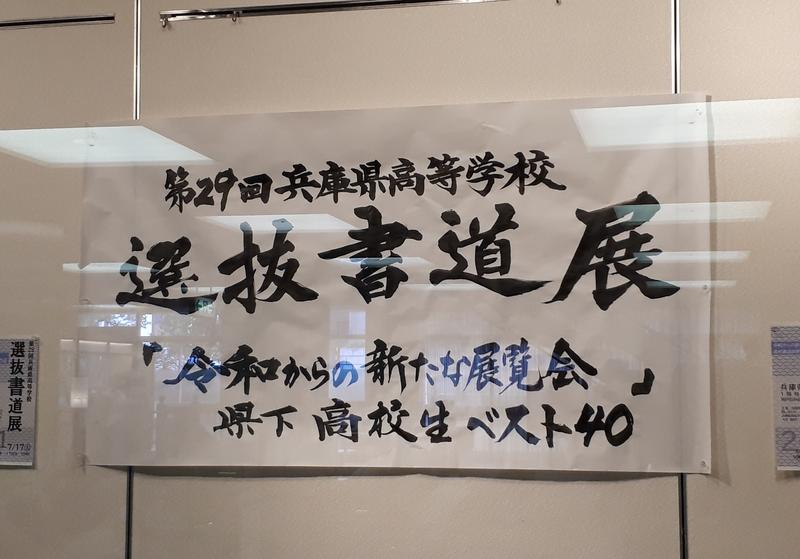 第29回兵庫県高等学校
選抜書道展
「令和からの新たな展覧会」
県下高校生ベスト40
第29回兵庫県高等学校
選抜書道展
7/17